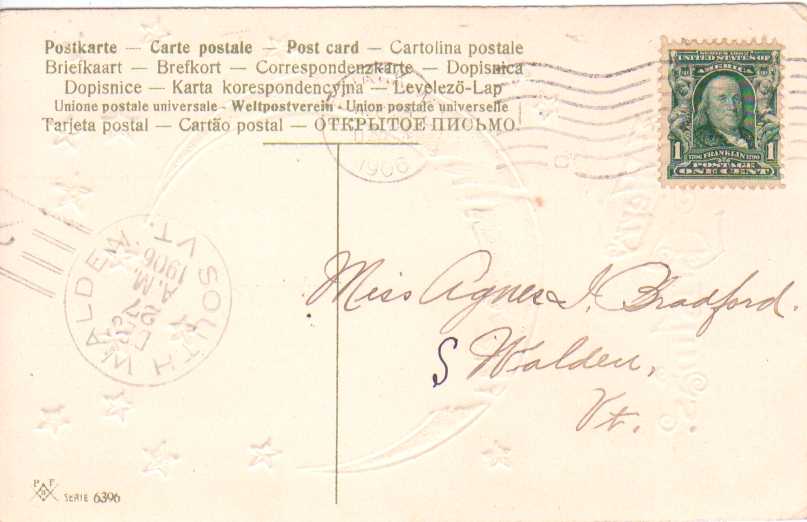 Postkarte — Carte postale — Post card — Cartolina postale
Briefkaart — Brefkort — Correspondenzkarte — Dopisnica
Dopisnice — Karta korespondencyjna — Levelező-Lap
Unione postale universale - Weltpostverein - Union postale universelle
Tarjeta postal — Cartão postal — ОТКРЫТОЕ ПИСЬМО.
1906
SERIES 1902
UNITED STATES OF
AMERICA
1706 FRANKLIN 1790
1 POSTAGE 1
ONE CENT
SOUTH WALDEN VT.
DEC
A.M.
1906
Miss Agnes I. Bradford.
S Walden,
Vt.
P F
SERIE 6396